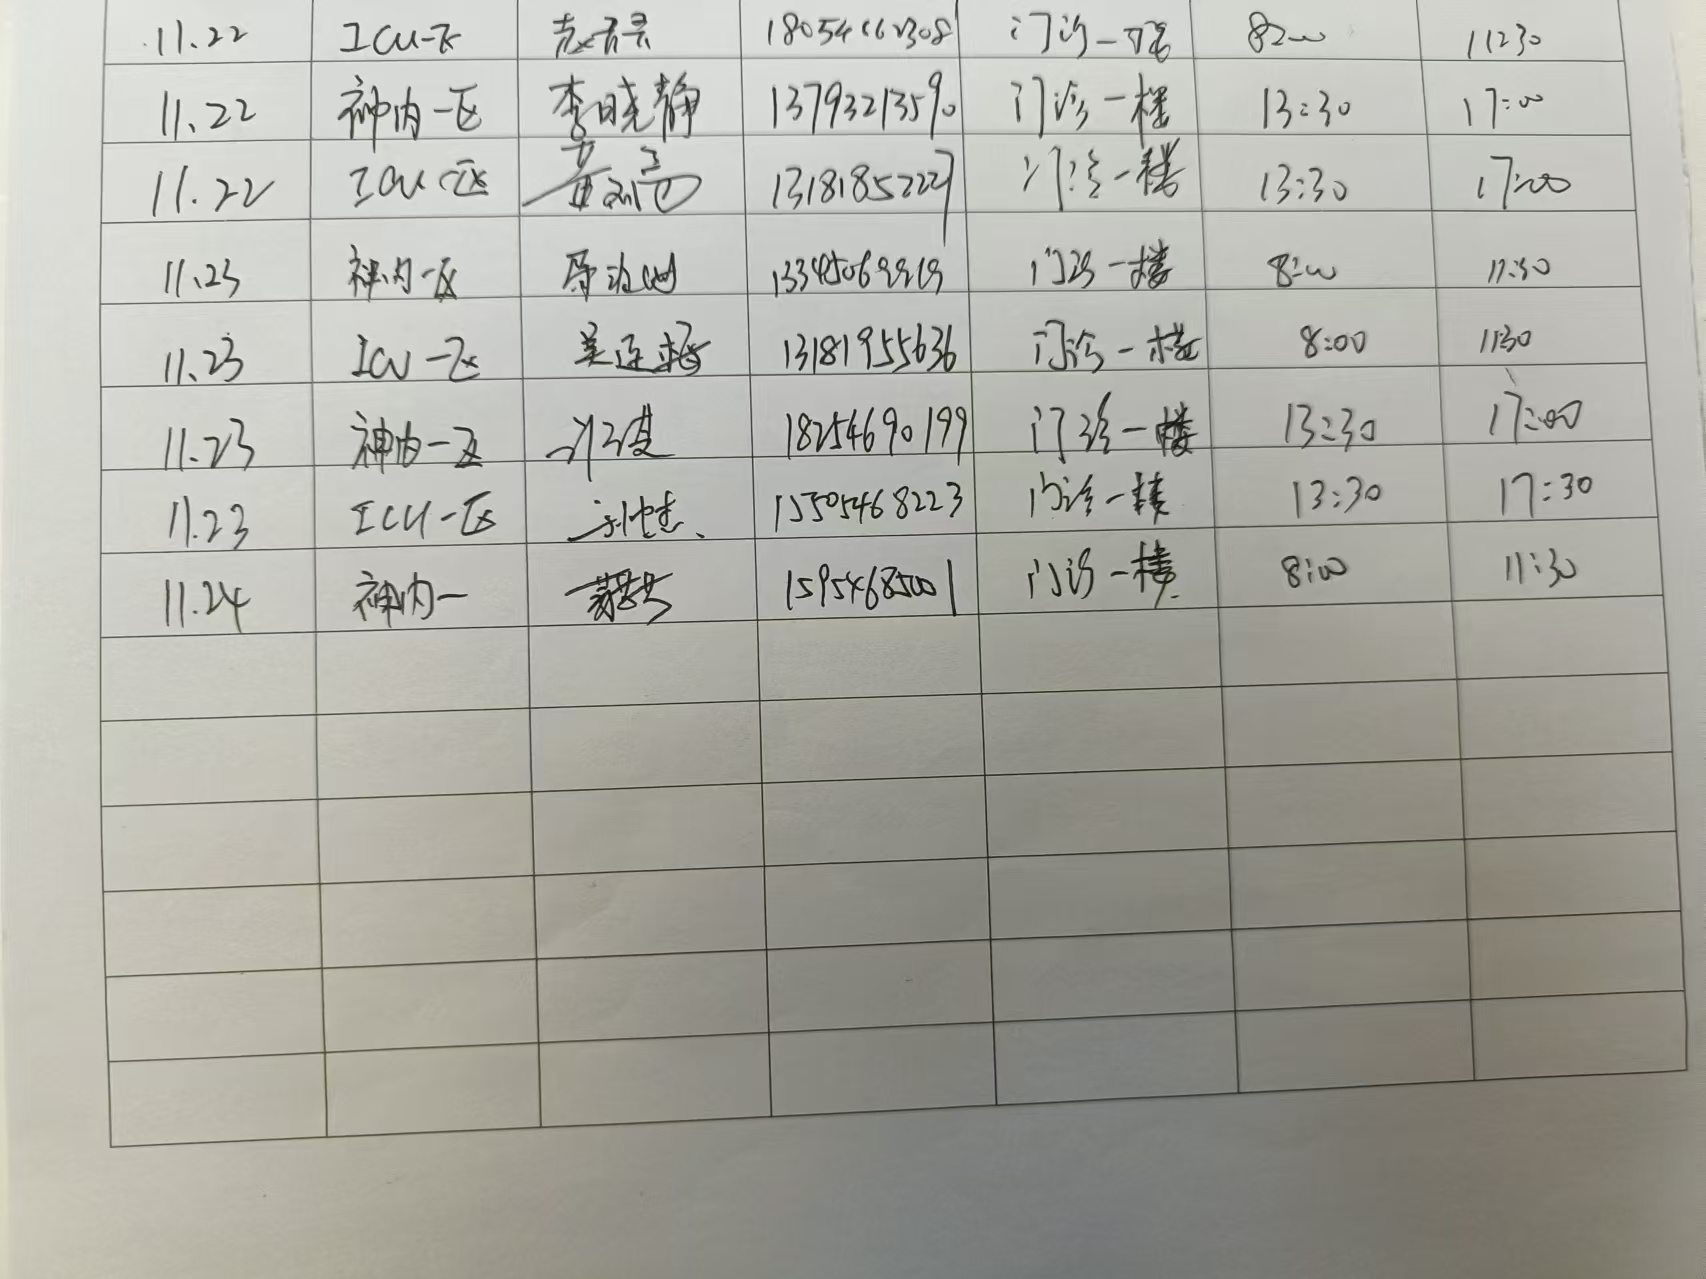 11.22 ICU一区 门诊一楼 8:00 11:30
11.22 神内一区 李晓静 13793213590 门诊一楼 13:30 17:00
11.22 ICU一区 13181852227 门诊一楼 13:30 17:00
11.23 神内一区 门诊一楼 8:00 11:30
11.23 ICU一区 13181955636 门诊一楼 8:00 11:30
11.23 神内一区 18254690199 门诊一楼 13:30 17:00
11.23 ICU一区 15505468223 门诊一楼 13:30 17:30
11.24 神内一 15954685001 门诊一楼 8:00 11:30